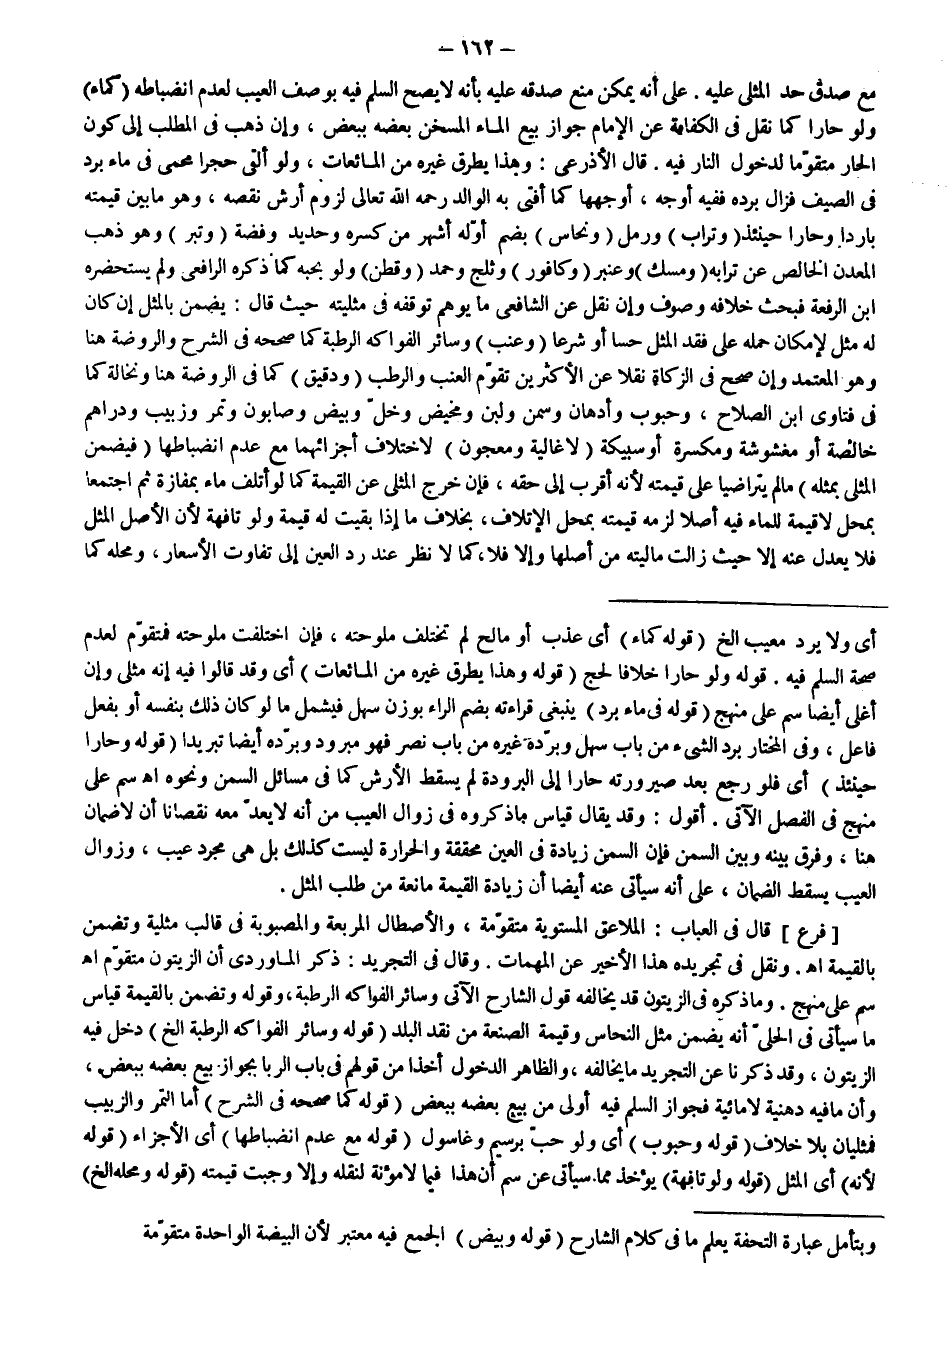 – ١٦٢ –
مع صدق حد المثلى عليه . على أنه يمكن منع صدقه عليه بأنه لايصح السلم فيه بوصف العيب لعدم انضباطه (كماء)
ولو حارا كما نقل فى الكفاية عن الإمام جواز بيع المـاء المسخن بعضه ببعض ، وإن ذهب فى المطلب إلى كون
الحار متقوّما لدخول النار فيه . قال الأذرعى : وهذا يطرق غيره من المـائعات ، ولو ألقى حجرا محمى فى ماء برد
فى الصيف فزال برده ففيه أوجه ، أوجهها كما أفتى به الوالد رحمه الله تعالى لزوم أرش نقصه ، وهو مابين قيمته
باردا وحارا حينئذ ( وتراب ) ورمل ( ونحاس ) بضم أوّله أشهر من كسره وحديد وفضة ( وتبر ) وهو ذهب
المعدن الخالص عن ترابه ( ومسك ) وعنبر ( وكافور ) وثلج وجمد ( وقطن) ولو بحبه كما ذكره الرافعى ولم يستحضره
ابن الرفعة فبحث خلافه وصوف وإن نقل عن الشافعى ما يوهم توقفه فى مثليته حيث قال : يضمن بالمثل إن كان
له مثل لإمكان حمله على فقد المثل حسا أو شرعا ( وعنب ) وسائر الفواكه الرطبة كما صححه فى الشرح والروضة هنا
وهو المعتمد وإن صحح فى الزكاة نقلا عن الأكثرين تقوّم العنب والرطب ( ودقيق ) كما فى الروضة هنا ونخالة كما
فى فتاوى ابن الصلاح ، وحبوب وأدهان وسمن ولبن ومخيض وخلّ وبيض وصابون وتمر وزبيب ودراهم
خالصة أو مغشوشة ومكسرة أو سبيكة ( لا غالية ومعجون ) لاختلاف أجزائهما مع عدم انضباطها ( فيضمن
المثلى بمثله ) مالم يتراضيا على قيمته لأنه أقرب إلى حقه ، فإن خرج المثلى عن القيمة كما لو أتلف ماء بمفازة ثم اجتمعا
بمحل لاقيمة للماء فيه أصلا لزمه قيمته بمحل الإتلاف ، بخلاف ما إذا بقيت له قيمة ولو تافهة لأن الأصل المثل
فلا يعدل عنه إلا حيث زالت ماليته من أصلها وإلا فلا ، كما لا نظر عند رد العين إلى تفاوت الأسعار ، ومحله كما
أى ولا يرد معيب الخ ( قوله كماء ) أى عذب أو مالح لم تختلف ملوحته ، فإن اختلفت ملوحته فمتقوّم لعدم
صحة السلم فيه . قوله ولو حارا خلافا لحج ( قوله وهذا يطرق غيره من المـائعات ) أى وقد قالوا فيه إنه مثلى وإن
أغلى أيضا سم على منهج ( قوله فى ماء برد ) ينبغى قراءته بضم الراء بوزن سهل فيشمل ما لو كان ذلك بنفسه أو بفعل
فاعل ، وفى المختار برد الشىء من باب سهل وبرّده غيره من باب نصر فهو مبرود وبرّده أيضا تبريدا ( قوله وحارا
حينئذ ) أى فلو رجع بعد صيرورته حارا إلى البرودة لم يسقط الأرش كما فى مسائل السمن ونحوه اه سم على
منهج فى الفصل الآتى . أقول : وقد يقال قياس ماذكروه فى زوال العيب من أنه لايعدّ معه نقصانا أن لاضمان
هنا ، وفرق بينه وبين السمن فإن السمن زيادة فى العين محققة والحرارة ليست كذلك بل هى مجرد عيب ، وزوال
العيب يسقط الضمان ، على أنه سيأتى عنه أيضا أن زيادة القيمة مانعة من طلب المثل .
[ فرع ] قال فى العباب : الملاعق المستوية متقوّمة ، والأصطال المربعة والمصبوبة فى قالب مثلية وتضمن
بالقيمة اه . ونقل فى تجريده هذا الأخير عن المهمات . وقال فى التجريد : ذكر المـاوردى أن الزيتون متقوّم اه
سم على منهج . وماذكره فى الزيتون قد يخالفه قول الشارح الآتى وسائر الفواكه الرطبة ، وقوله وتضمن بالقيمة قياس
ما سيأتى فى الحلىّ أنه يضمن مثل النحاس وقيمة الصنعة من نقد البلد ( قوله وسائر الفواكه الرطبة الخ ) دخل فيه
الزيتون ، وقد ذكرنا عن التجريد مايخالفه ، والظاهر الدخول أخذا من قولهم فى باب الربا بجواز بيع بعضه ببعض ،
وأن مافيه دهنية لامائية فجواز السلم فيه أولى من بيع بعضه ببعض ( قوله كما صححه فى الشرح ) أما التمر والزبيب
فمثليان بلا خلاف ( قوله وحبوب ) أى ولو حبّ برسيم وغاسول ( قوله مع عدم انضباطها ) أى الأجزاء ( قوله
لأنه ) أى المثل ( قوله ولو تافهة) يؤخذ مما سيأتى عن سم أن هذا فيما لامؤنة لنقله وإلا وجبت قيمته (قوله ومحله الخ)
وبتأمل عبارة التحفة يعلم ما فى كلام الشارح ( قوله وبيض ) الجمع فيه معتبر لأن البيضة الواحدة متقوّمة